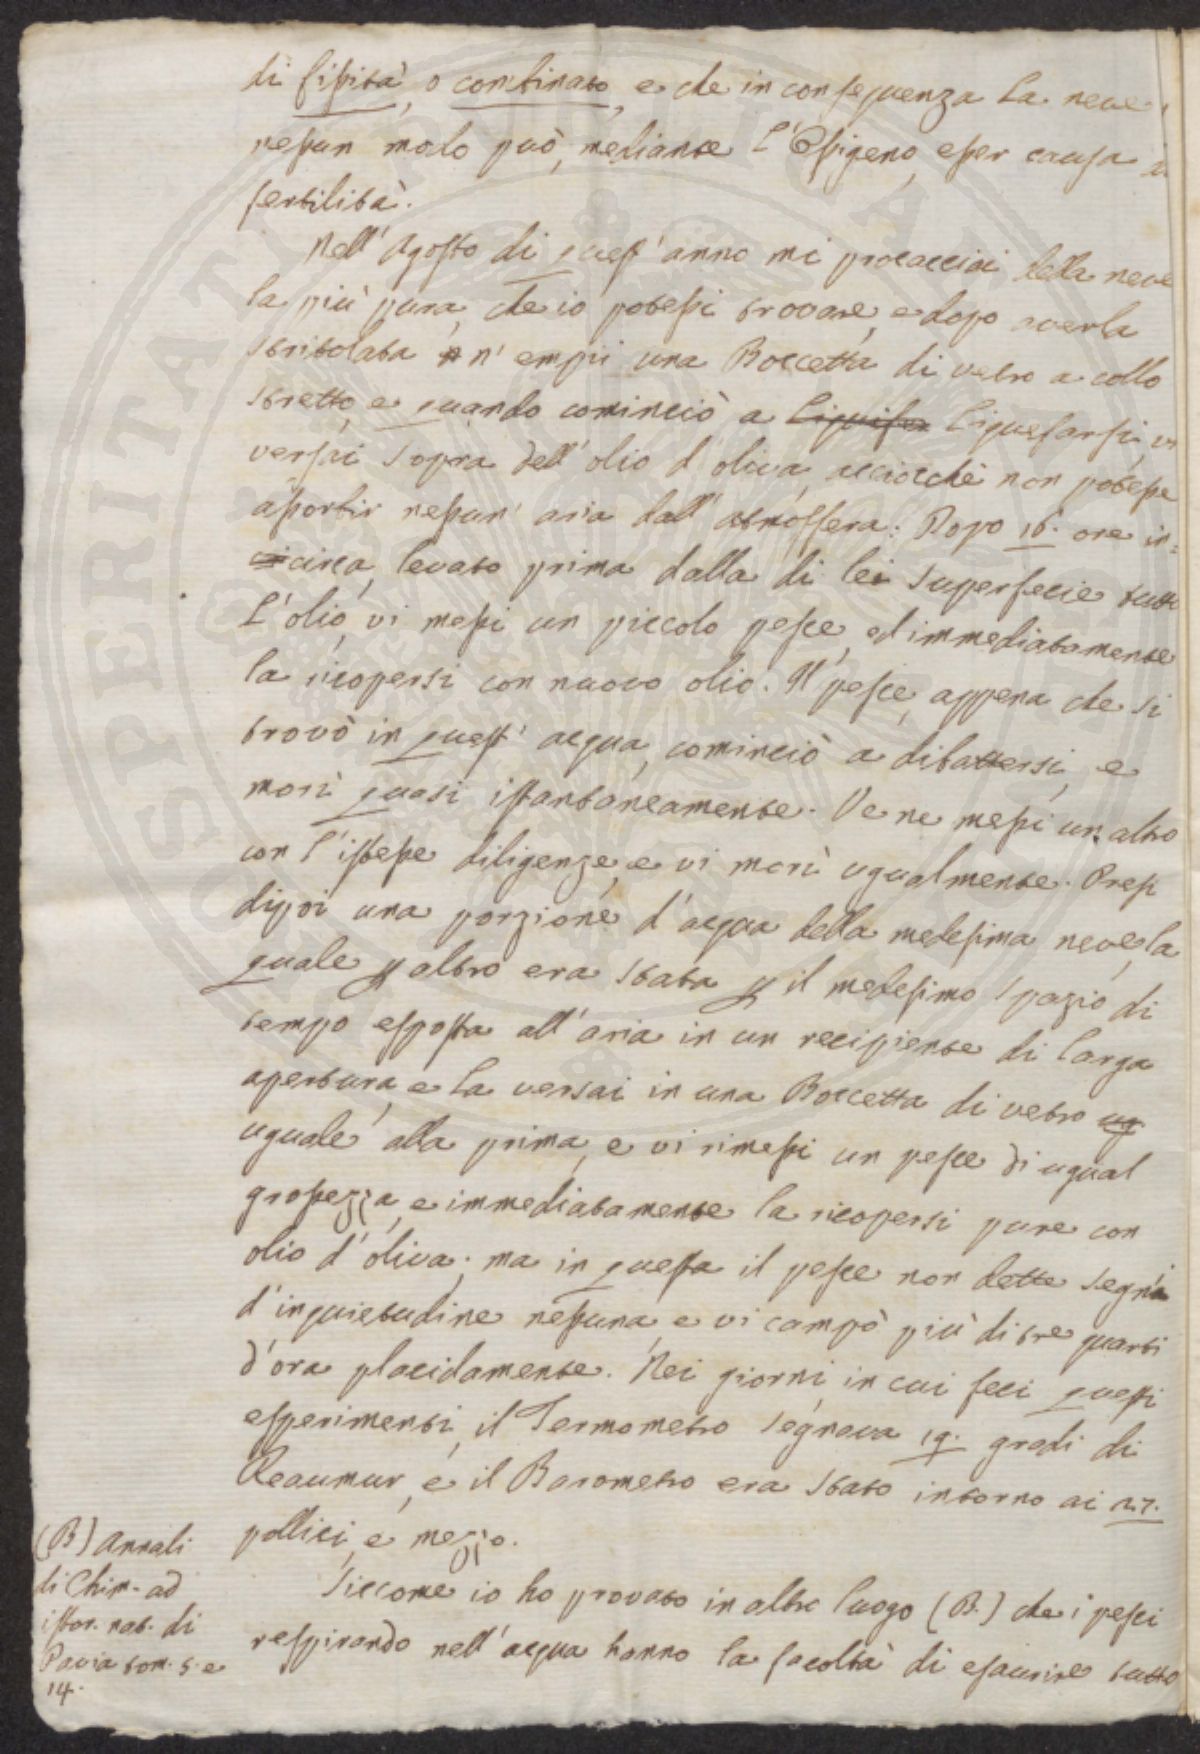 di fissità, o combinato, e che in conseguenza la neve
nessun modo può, mediante l'Ossigeno, esser causa di
fertilità.
Nell'Agosto di quest'anno mi procacciai della neve
la più pura, che io potessi trovare, e dopo averla
stritolata n'empii una Boccetta di vetro a collo
stretto, e quando cominciò a liquefar liquefarsi, vi
versai sopra dell'olio d'oliva, acciocchè non potesse
assorbir nessun'aria dall'atmosfera. Dopo 16. ore in=
circa, levato prima dalla di lei superfecie tutto
l'olio, vi messi un piccolo pesce, ed immediatamente
la ricopersi con nuovo olio. Il pesce, appena che si
trovò in quest'acqua, cominciò a dibattersi, e
morì quasi istantaneamente. Ve ne messi un altro
con l'istesse diligenze, e vi morì ugualmente. Presi
dipoi una porzione d'acqua della medesima neve, la
quale p altro era stata p il medesimo spazio di
tempo esposta all'aria in un recipiente di larga
apertura, e la versai in una Boccetta di vetro ug
uguale alla prima, e vi rimessi un pesce di ugual
grossezza, e immediatamente la ricopersi pure con
olio d'oliva; ma in questa il pesce non dette segni
d'inquietudine nessuna, e vi campò più di tre quarti
d'ora placidamente. Nei giorni in cui feci questi
esperimenti, il Termometro segnava 19. gradi di
Reaumur, e il Barometro era stato intorno ai 27.
pollici, e mezzo.
Siccome io ho provato in altro luogo (B.) che i pesci
respirando nell'acqua hanno la facoltà di esaurire tutto
(B) Annali
di Chim. ad
istor. nat. di
Pavia tom. 5. e
14.
SPERITATI